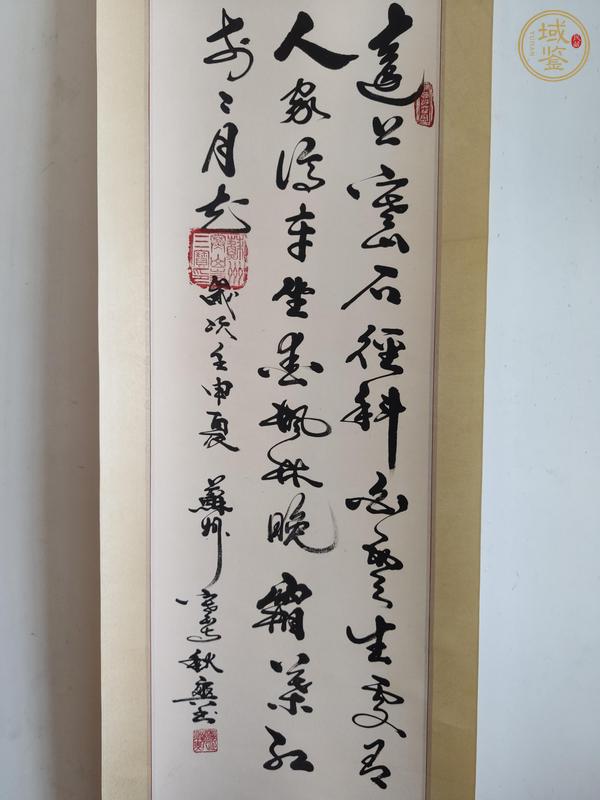 遠上寒山石徑斜白雲生處有
人家停車坐愛楓林晚霜葉紅
於二月花 歲次壬申夏 蘇州寒山寺秋爽書
域鉴